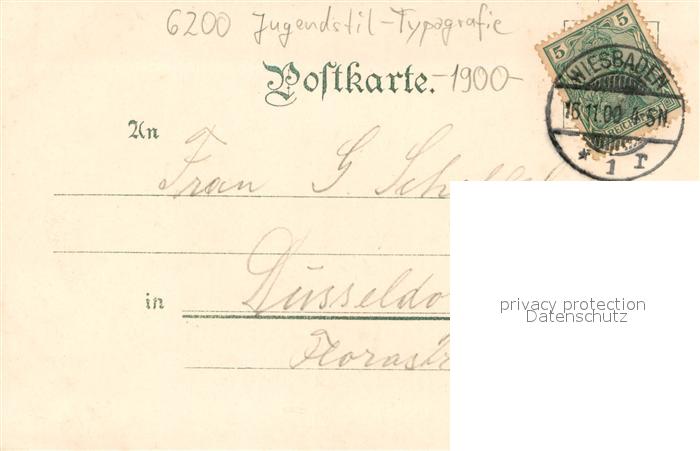 6200 Jugendstil-Typografie
Postkarte. -1900-
5 5
WIESBADEN
15.11.00
* 1 r
An
Frau G.
in Düsseldo
Florastr
privacy protection
Datenschutz